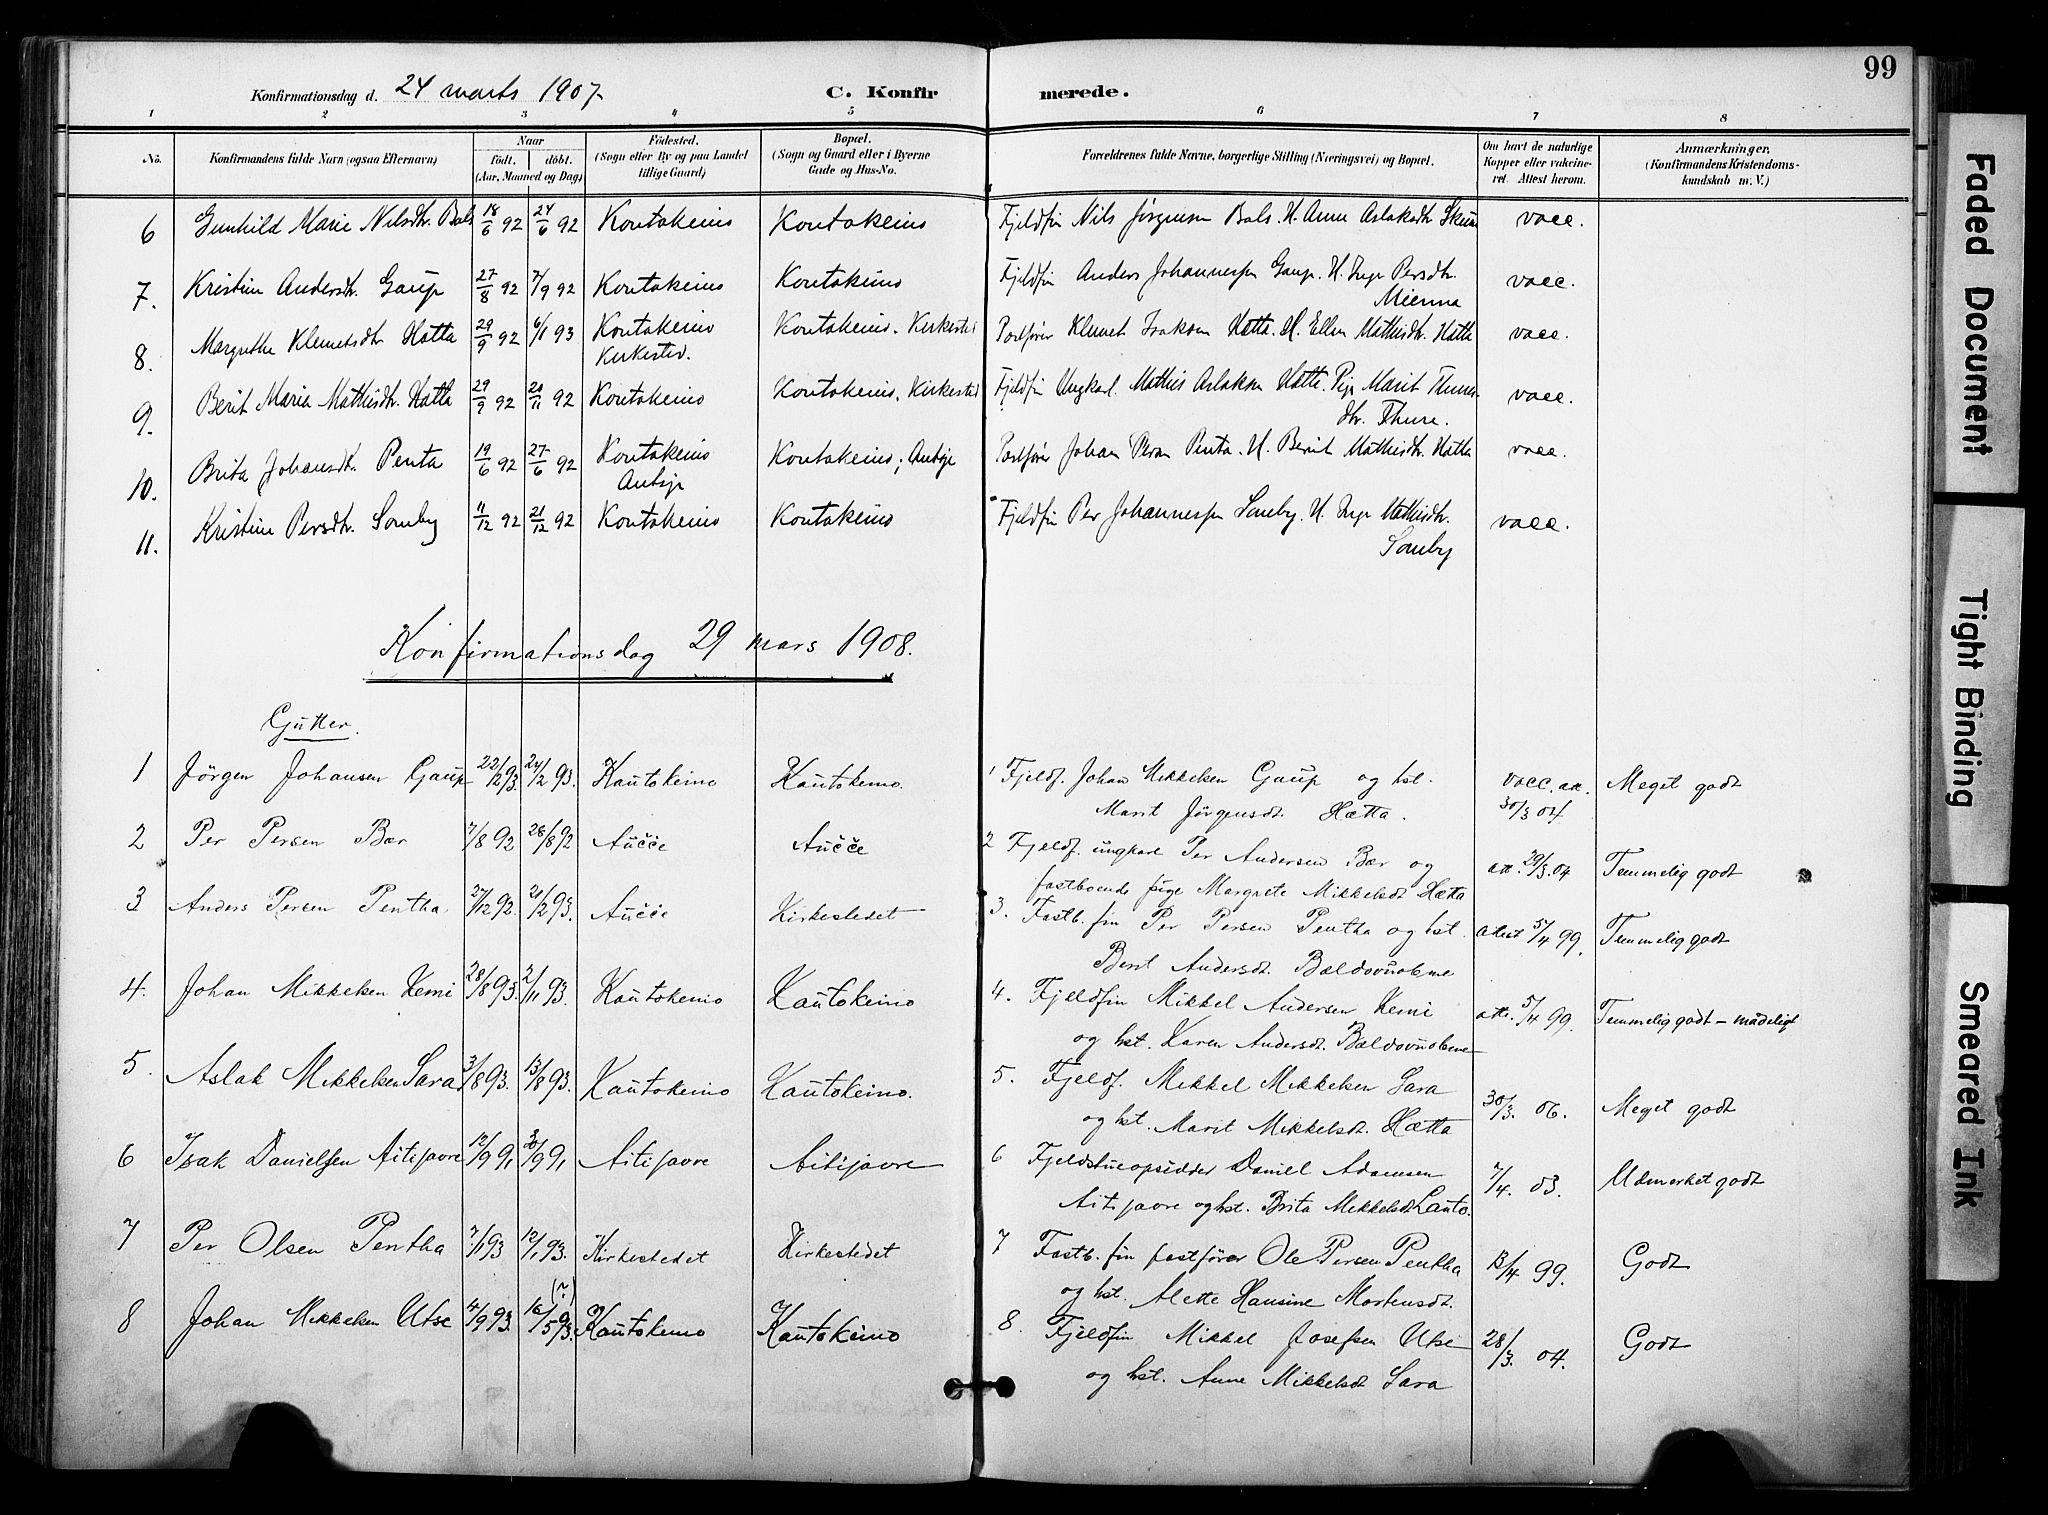 99
Konfirmationsdag d. 24 marts 1907.
C. Konfirmerede.
1 2 3 4 5 6 7 8
No.
Konfirmandens fulde Navn (ogsaa Efternavn)
Naar
født. døbt.
(Aar, Maaned og Dag)
Fødested.
(Sogn eller By og paa Landet
tillige Gaard)
Bopæl.
(Sogn og Gaard eller i Byerne
Gade og Hus-No.
Forældrenes fulde Navne, borgerlige Stilling (Næringsvei) og Bopæl.
Om havt de naturlige
Kopper eller vakcine-
ret. Attest herom.
Anmærkninger,
(Konfirmandens Kristendoms-
kundskab m. V.)
6 Gunhild Marie Nilsdtr. Bals 18/6 92 24/6 92 Koutokeino Koutokeino Fjeldfin Nils Jørgensen Bals. H. Anne Aslaksdtr. vacc.
7. Kristine Andersdtr. Gaup 27/8 92 7/9 92 Koutokeino Koutokeino Fjeldfin Anders Johannessen Gaup. H. Inga Persdtr. vacc.
Mienna
8. Margrethe Klemetsdtr. Hætta 29/9 92 6/1 93 Koutokeino Koutokeino. Kirkested Postfører Klemet Isaksen Hætta. H. Ellen Mathisdtr. Hætta vacc.
Kirkested.
9. Berit Marie Mathisdtr. Hætta 29/9 92 20/11 92 Koutokeino Koutokeino, Kirkested Fjeldfin Ungkarl Mathis Aslaksen Hætta. Pige Marit Thures- vacc.
dtr. Thure.
10. Brita Johansdtr. Penta 19/6 92 27/6 92 Koutokeino Koutokeino; Autsje Postfører Johan Persen Penta. H. Berit Mathisdtr. Hætta vacc.
Autsje
11. Kristine Persdtr. Somby 11/12 92 21/12 92 Koutokeino Koutokeino Fjeldfin Per Johannessen Somby. H. Inga Mathisdtr. vacc.
Somby
Konfirmationsdag 29 mars 1908.
Gutter.
1 Jørgen Johansen Gaup 22/12 93. 24/2 93. Kautokeino Kautokeino. 1 Fjeldf. Johan Mikkelsen Gaup og hst. vacc. att. Meget godt
Marit Jørgensdt. Hætta. 30/3 04
2 Per Persen Bær 7/8 92 28/8 92 Aučče Aučče 2 Fjeldf. ungkarl Per Andersen Bær og att. 29/3. 04 Temmelig godt
fastboende pige Margrete Mikkelsdt. Hætta
3 Anders Persen Pentha 27/12 92. 21/2 93. Aučče Kirkestedet 3. Fastb. fin Per Persen Pentha og hst. attest 5/4 99. Temmelig godt
Berit Andersdt. Bældovuobme
4. Johan Mikkelsen Kemi 28/8 93. 2/11 93. Kautokeino Kautokeino 4. Fjeldfin Mikkel Andersen Kemi att. 5/4 99. Temmelig godt - mådeligt
og hst. Karen Andersdt. Bældovuobme
5. Aslak Mikkelsen Sara 3/8 93. 13/8 93. Kautokeino Kautokeino. 5. Fjeldf. Mikkel Mikkelsen Sara 30/3. 06. Meget godt
og hst. Marit Mikkelsdt. Hætta
6 Isak Danielsen Aitijavre 12/9 91 30/9 91 Aitijavre Aitijavre 6 Fjeldstueopsidder Daniel Adamsen 7/4. 03. Udmerket godt
Aitijavre og hst. Brita Mikkelsdt. Lauto.
7 Per Olsen Pentha 7/1 93 12/1 93. Kirkestedet Kirkestedet 7 Fastb. fin postfører Ole Persen Pentha 13/4 99. Godt
og hst. Alette Hansine Mortensdt.
(?)
8 Johan Mikkelsen Utse 4/9 93. 16/5 93. Kautokeino Kautokeino 8. Fjeldfin Mikkel Josefsen Utse 28/3. 04. Godt
og hst. Anne Mikkelsdt Sara
Faded Document
Tight Binding
Smeared Ink